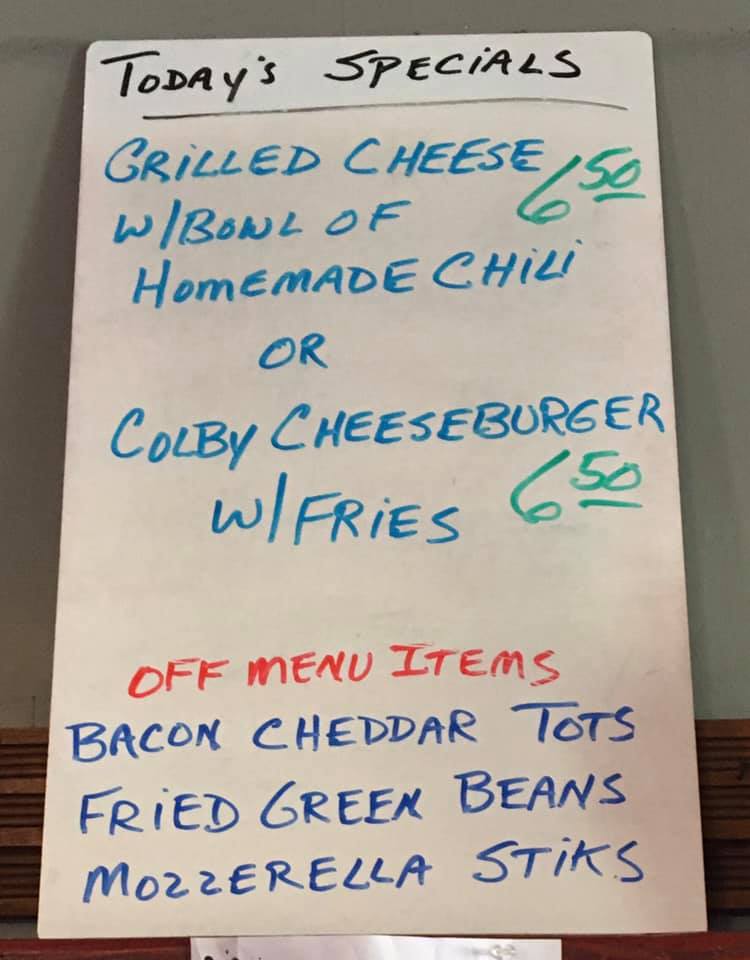 TODAY'S SPECIALS
GRILLED CHEESE 6 50
W/BOWL OF
HOMEMADE CHILI
OR
COLBY CHEESEBURGER
W/FRIES 6 50
OFF MENU ITEMS
BACON CHEDDAR TOTS
FRIED GREEN BEANS
MOZZERELLA STIKS